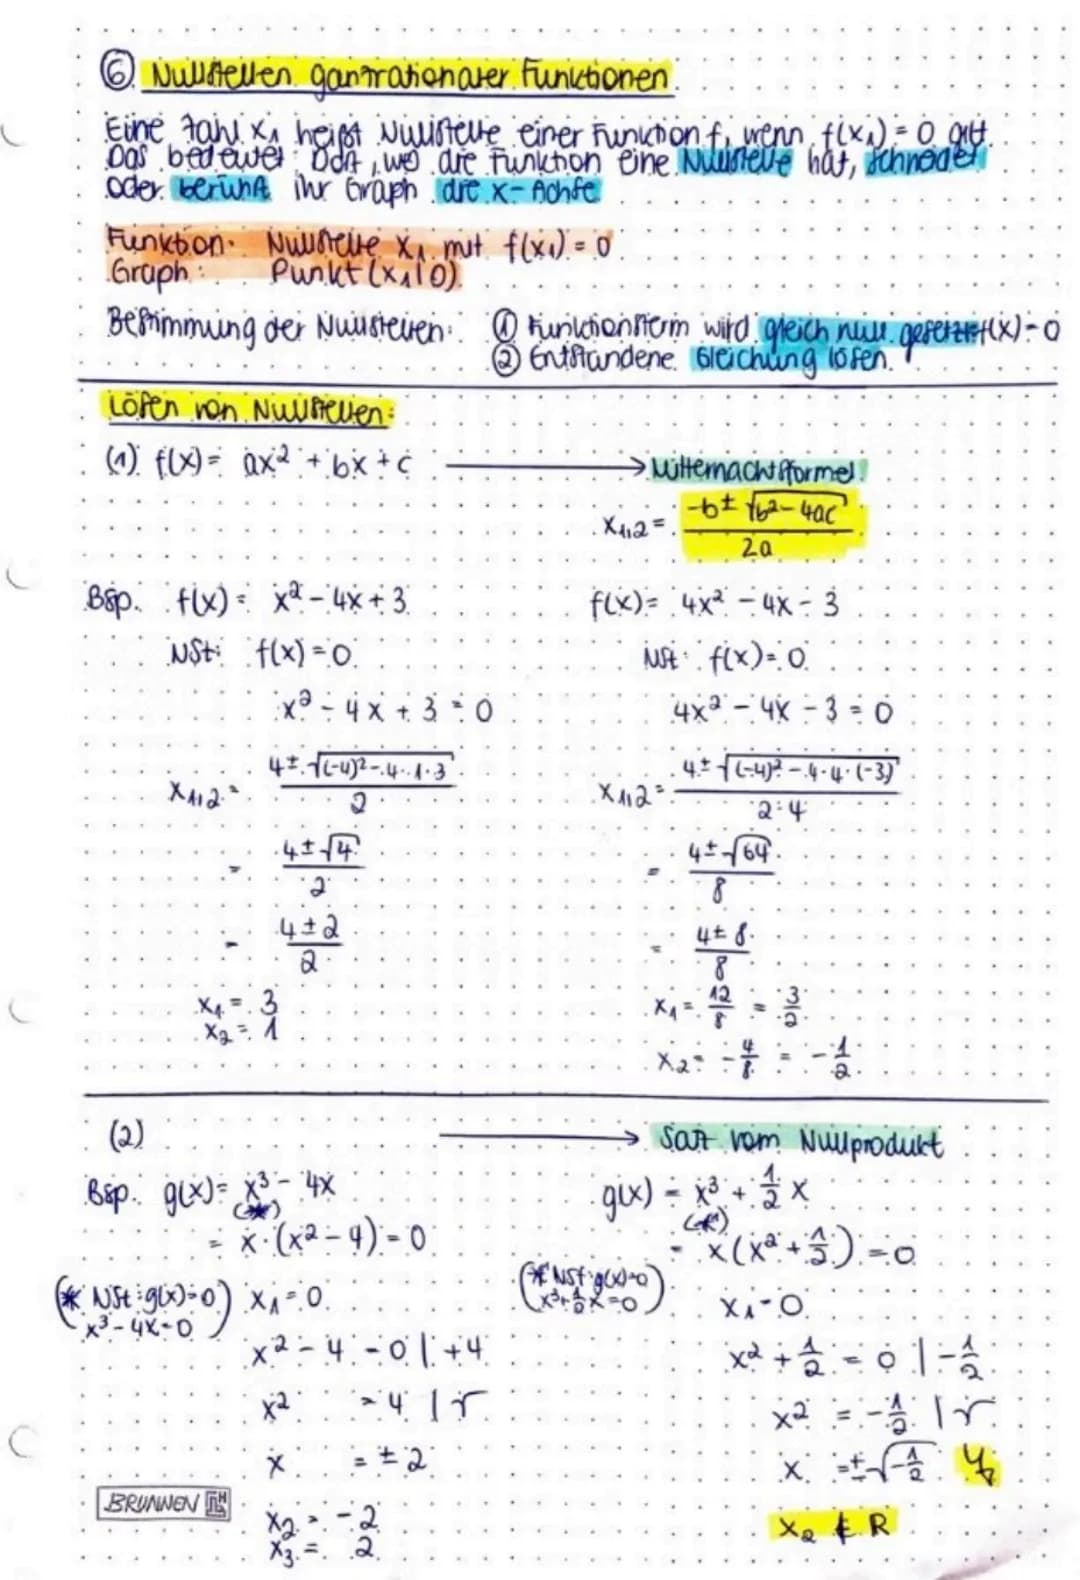 ⑥ Nullstellen ganzrationaler Funktionen
Eine Zahl x₁ heißt Nullstelle einer Funktion f, wenn f(x₁) = 0 gilt.
Das bedeutet: Dort, wo die Funktion eine Nullstelle hat, schneidet
oder berührt ihr Graph die x-Achse
Funktion: Nullstelle x₁ mit f(x₁) = 0
Graph: Punkt (x₁|0)
Bestimmung der Nullstellen: ① Funktionsterm wird gleich null gesetzt f(x) = 0
② Entstandene Gleichung lösen.
Lösen von Nullstellen:
(1) f(x) = ax² + bx + c → Mitternachtsformel!
x₁,₂ = (-b ± √(b² - 4ac)) / 2a
Bsp. f(x) = x² - 4x + 3
NSt: f(x) = 0
x² - 4x + 3 = 0
x₁,₂ = (4 ± √((-4)² - 4 · 1 · 3)) / 2
= (4 ± √4) / 2
= (4 ± 2) / 2
x₁ = 3
x₂ = 1
f(x) = 4x² - 4x - 3
NSt: f(x) = 0
4x² - 4x - 3 = 0
x₁,₂ = (4 ± √((-4)² - 4 · 4 · (-3))) / 2 · 4
= (4 ± √64) / 8
= (4 ± 8) / 8
x₁ = 12/8 = 3/2
x₂ = -4/8 = -1/2
(2) → Satz vom Nullprodukt
Bsp. g(x) = x³ - 4x
(*)
= x · (x² - 4) = 0
(* NSt: g(x) = 0)
x³ - 4x = 0
x₁ = 0
x² - 4 = 0 | + 4
x² = 4 | √
x = ± 2
x₂ = -2
x₃ = 2
g(x) = x³ + 1/2 x
(*)
= x (x² + 1/2) = 0
(* NSt: g(x) = 0)
x³ + 1/2 x = 0
x₁ = 0
x² + 1/2 = 0 | - 1/2
x² = -1/2 | √
x = ± √(-1/2) ↯
x₂ ∉ R
BRUNNEN